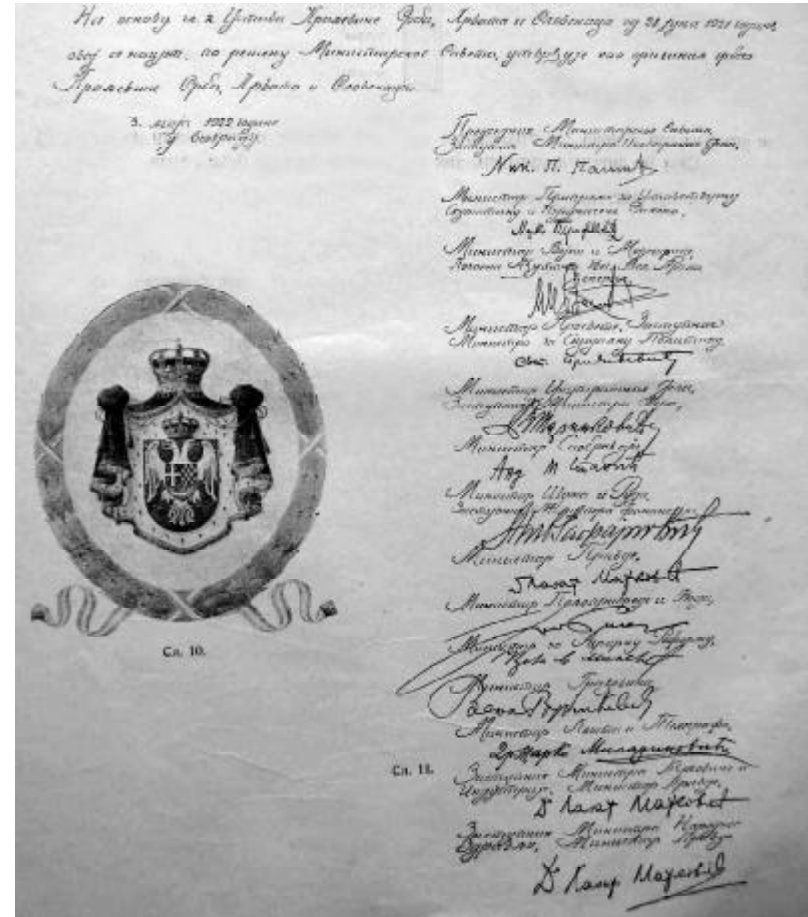 На основу чл. 2 Устава Краљевине Срба, Хрвата и Словенаца од 28. јуна 1921 године,
овај се нацрт, по решењу Министарског Савета, утврђује као оригинал грба
Краљевине Срба, Хрвата и Словенаца
3. марта 1922 године
у Београду
Председник Министарског Савета,
Заступник Министра Иностраних Дела,
Ник. П. Пашић
Министар Припреме за Уставотворну
Скупштину и Изједначење Закона,
Министар Војни и Морнарице,
Почасни Ађутант Њег. Вел. Краља
Ђенерал
Министар Просвете, Заступник
Министра за Социјалну Политику
Министар Унутрашњих Дела,
Заступник Министра Вера,
Министар Саобраћаја
Министар Шума и Руда,
Заступник Министра финансија,
Министар Правде,
Лазар Марковић
Министар Пољопривреде и Вода,
Министар за Аграрну Реформу,
Министар Грађевина,
Министар Пошта и Телеграфа,
Др Жарко Миладиновић
Заступник Министра Трговине и
Индустрије, Министар Правде,
Др Лазар Марковић
Заступник Министра Народног
Здравља, Министар Правде
Др Лазар Марковић
Сл. 10.
Сл. 11.